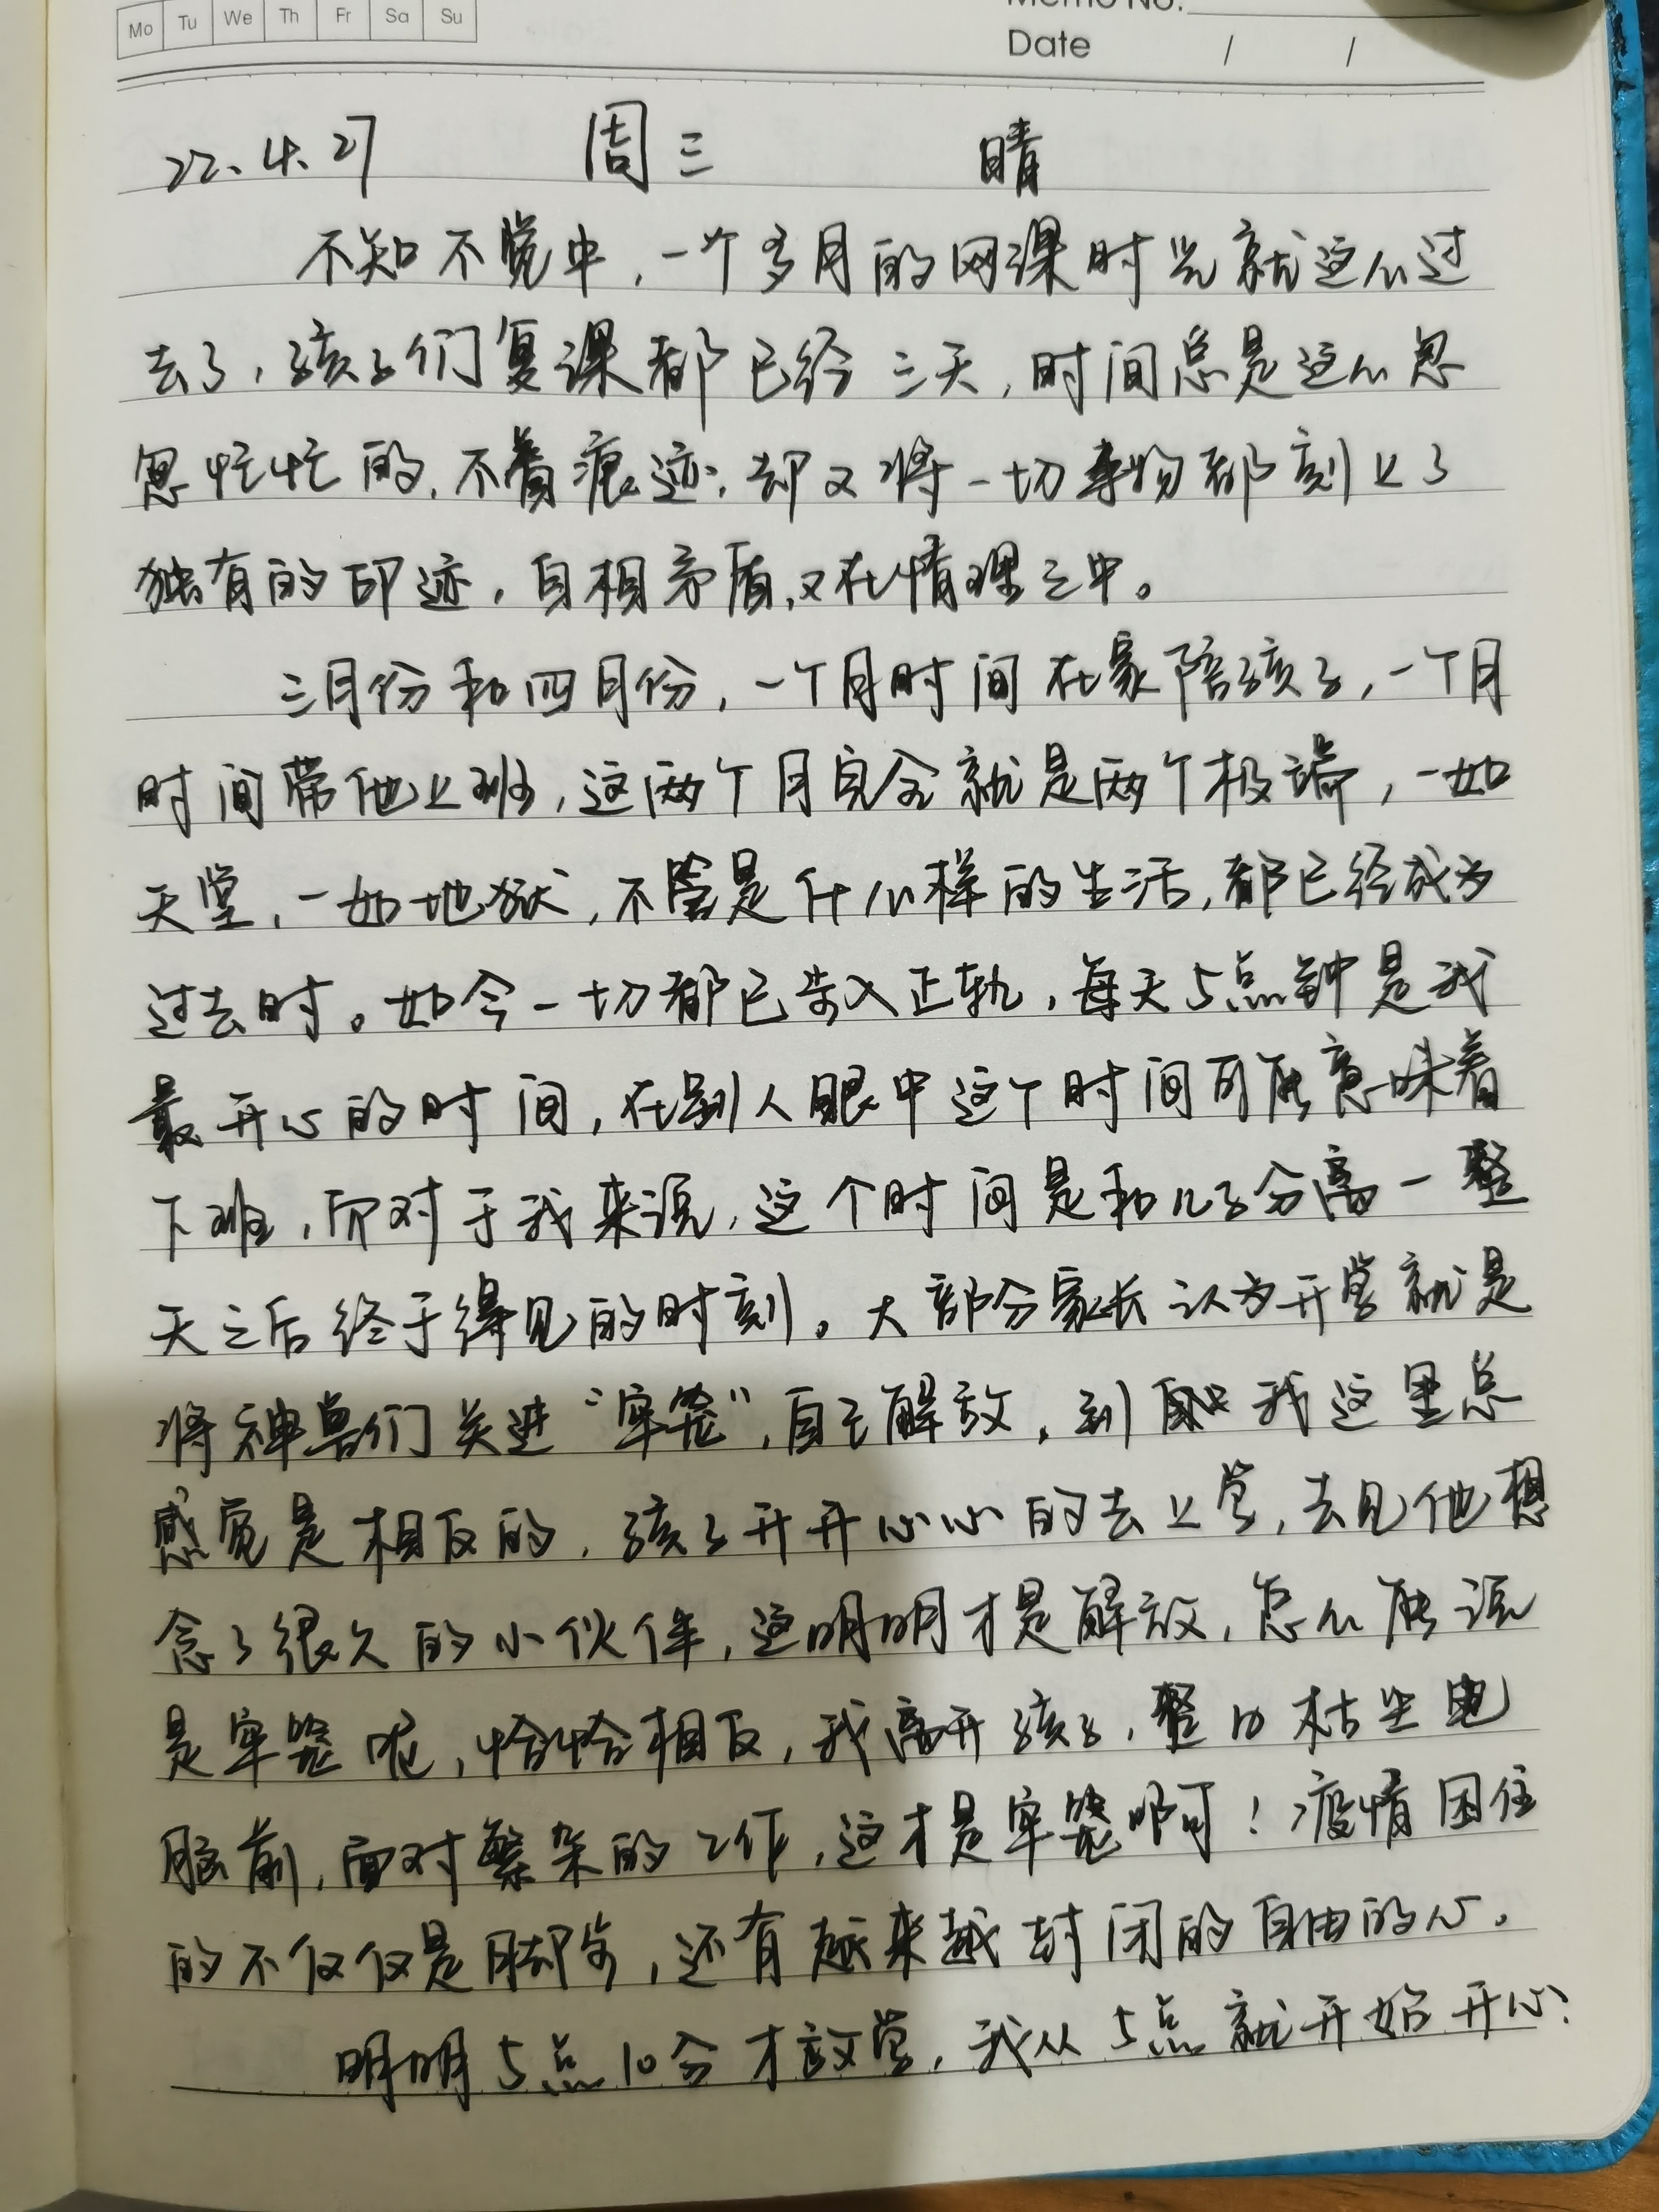 Mo Tu We Th Fr Sa Su
Memo No.
Date / /
22.4.27 周三 晴
不知不觉中，一个多月的网课时光就这么过
去了，孩子们复课都已经三天，时间总是这么忽
忽忙忙的，不着痕迹，却又将一切事物都刻上了
独有的印迹，自相矛盾，又在情理之中。
三月份和四月份，一个月时间在家陪孩子，一个月
时间带他上班，这两个月完全就是两个极端，一如
天堂，一如地狱，不管是什么样的生活，都已经成为
过去时。如今一切都已步入正轨，每天5点钟是我
最开心的时间，在别人眼中这个时间可能意味着
下班，而对于我来说，这个时间是和儿子分离一整
天之后终于得见的时刻。大部分家长认为开学就是
将神兽们关进“牢笼”，自己解放，到我这里总
感觉是相反的，孩子开开心心的去上学，去见他想
念了很久的小伙伴，这明明才是解放，怎么能说
是牢笼呢，恰恰相反，我离开孩子，整日枯坐电
脑前，面对繁杂的工作，这才是牢笼啊！疫情困住
的不仅仅是脚步，还有越来越封闭的自由的心。
明明5点10分才放学，我从5点就开始开心